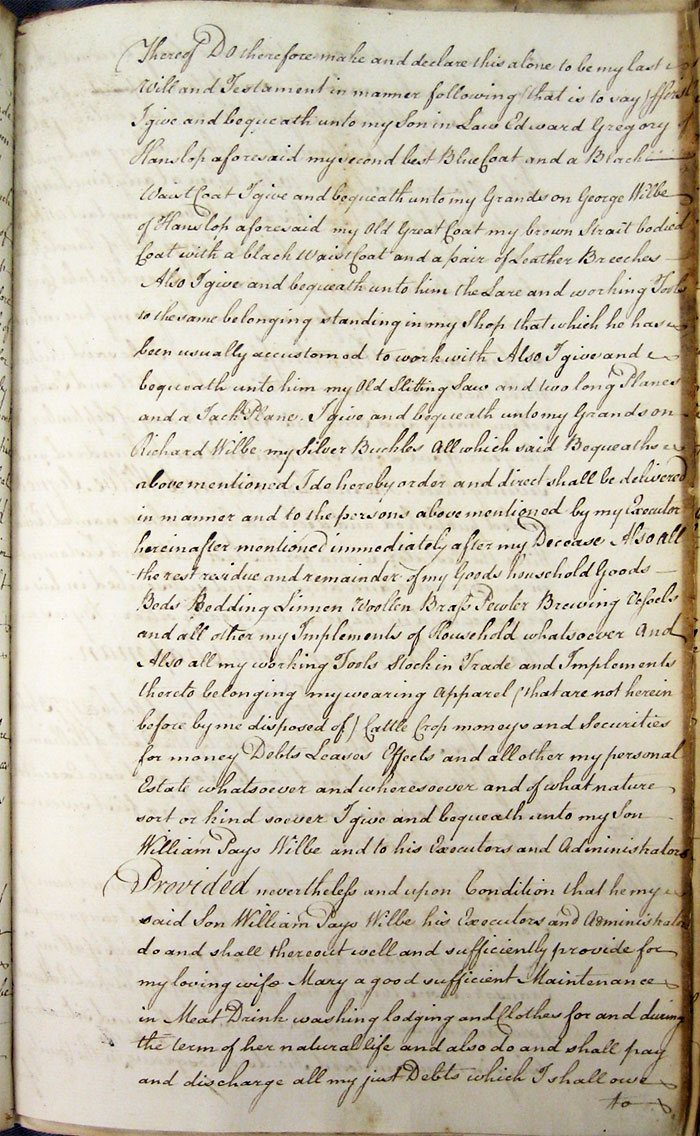 Thereof Do therefore make and declare this alone to be my last
Will and Testament in manner following (that is to say) ffirst
I give and bequeath unto my Son in Law Edward Gregory of
Hanslop aforesaid my second best Blue Coat and a Black
Waist Coat I give and bequeath unto my Grandson George Wilbe
of Hanslop aforesaid my Old Great Coat my brown Strait bodied
Coat with a black Waist Coat and a pair of Leather Breeches
Also I give and bequeath unto him the Lare and working Tools
to the same belonging standing in my Shop that which he has
been usually accustomed to work with Also I give and
bequeath unto him my Old Slitting Saw and two long Planes
and a Jack Plane. I give and bequeath unto my Grandson
Richard Wilbe my Silver Buckles All which said Bequeaths
above mentioned I do hereby order and direct shall be delivered
in manner and to the persons above mentioned by my Executor
hereinafter mentioned immediately after my Decease Also all
the rest residue and remainder of my Goods household Goods
Beds Bedding Linnen Woollen Brass Pewter Brewing Vessels
and all other my Implements of Household whatsoever And
Also all my working Tools Stock in Trade and Implements
thereto belonging my wearing Apparel (that are not herein
before by me disposed of) Cattle Crop moneys and Securities
for money Debts Leases Effects and all other my personal
Estate whatsoever and wheresoever and of what nature
sort or kind soever I give and bequeath unto my Son
William Pays Wilbe and to his Executors and Administrators
Provided nevertheless and upon Condition that he my
said Son William Pays Wilbe his Executors and Administrators
do and shall thereout well and sufficiently provide for
my loving wife Mary a good sufficient Maintenance
in Meat Drink washing lodging and Clothes for and during
the term of her natural life and also do and shall pay
and discharge all my just Debts which I shall owe
to